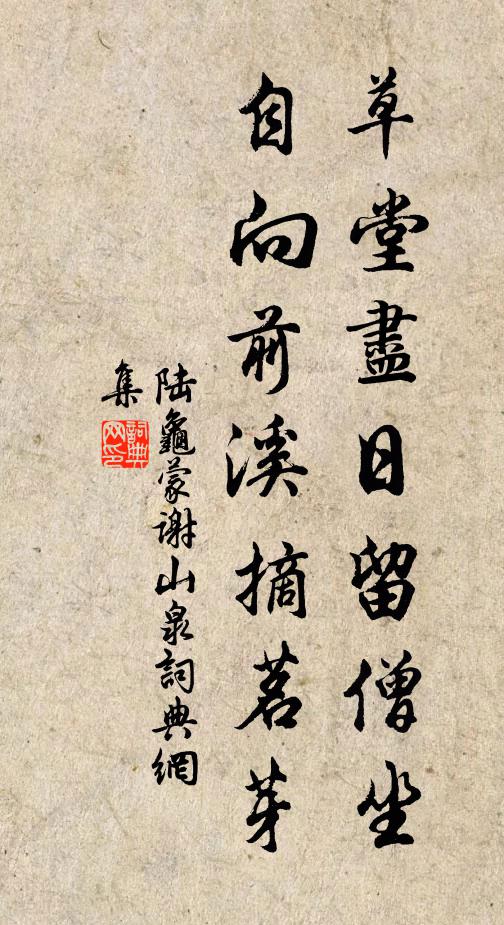 草堂盡日留僧坐
自向前溪摘茗芽
陆龜蒙谢山泉詞典網
集
詞典
网印